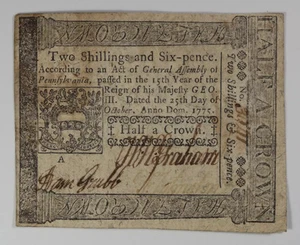 Two Shillings and Six-pence.
According to an Act of General Assembly of
Pennsylvania, passed in the 15th Year of the
Reign of his Majesty GEO.
III. Dated the 25th Day of
October, Anno Dom. 1775.
Half a Crown.
A
No.
Two Shillings & Six-pence.
HALF A CROWN